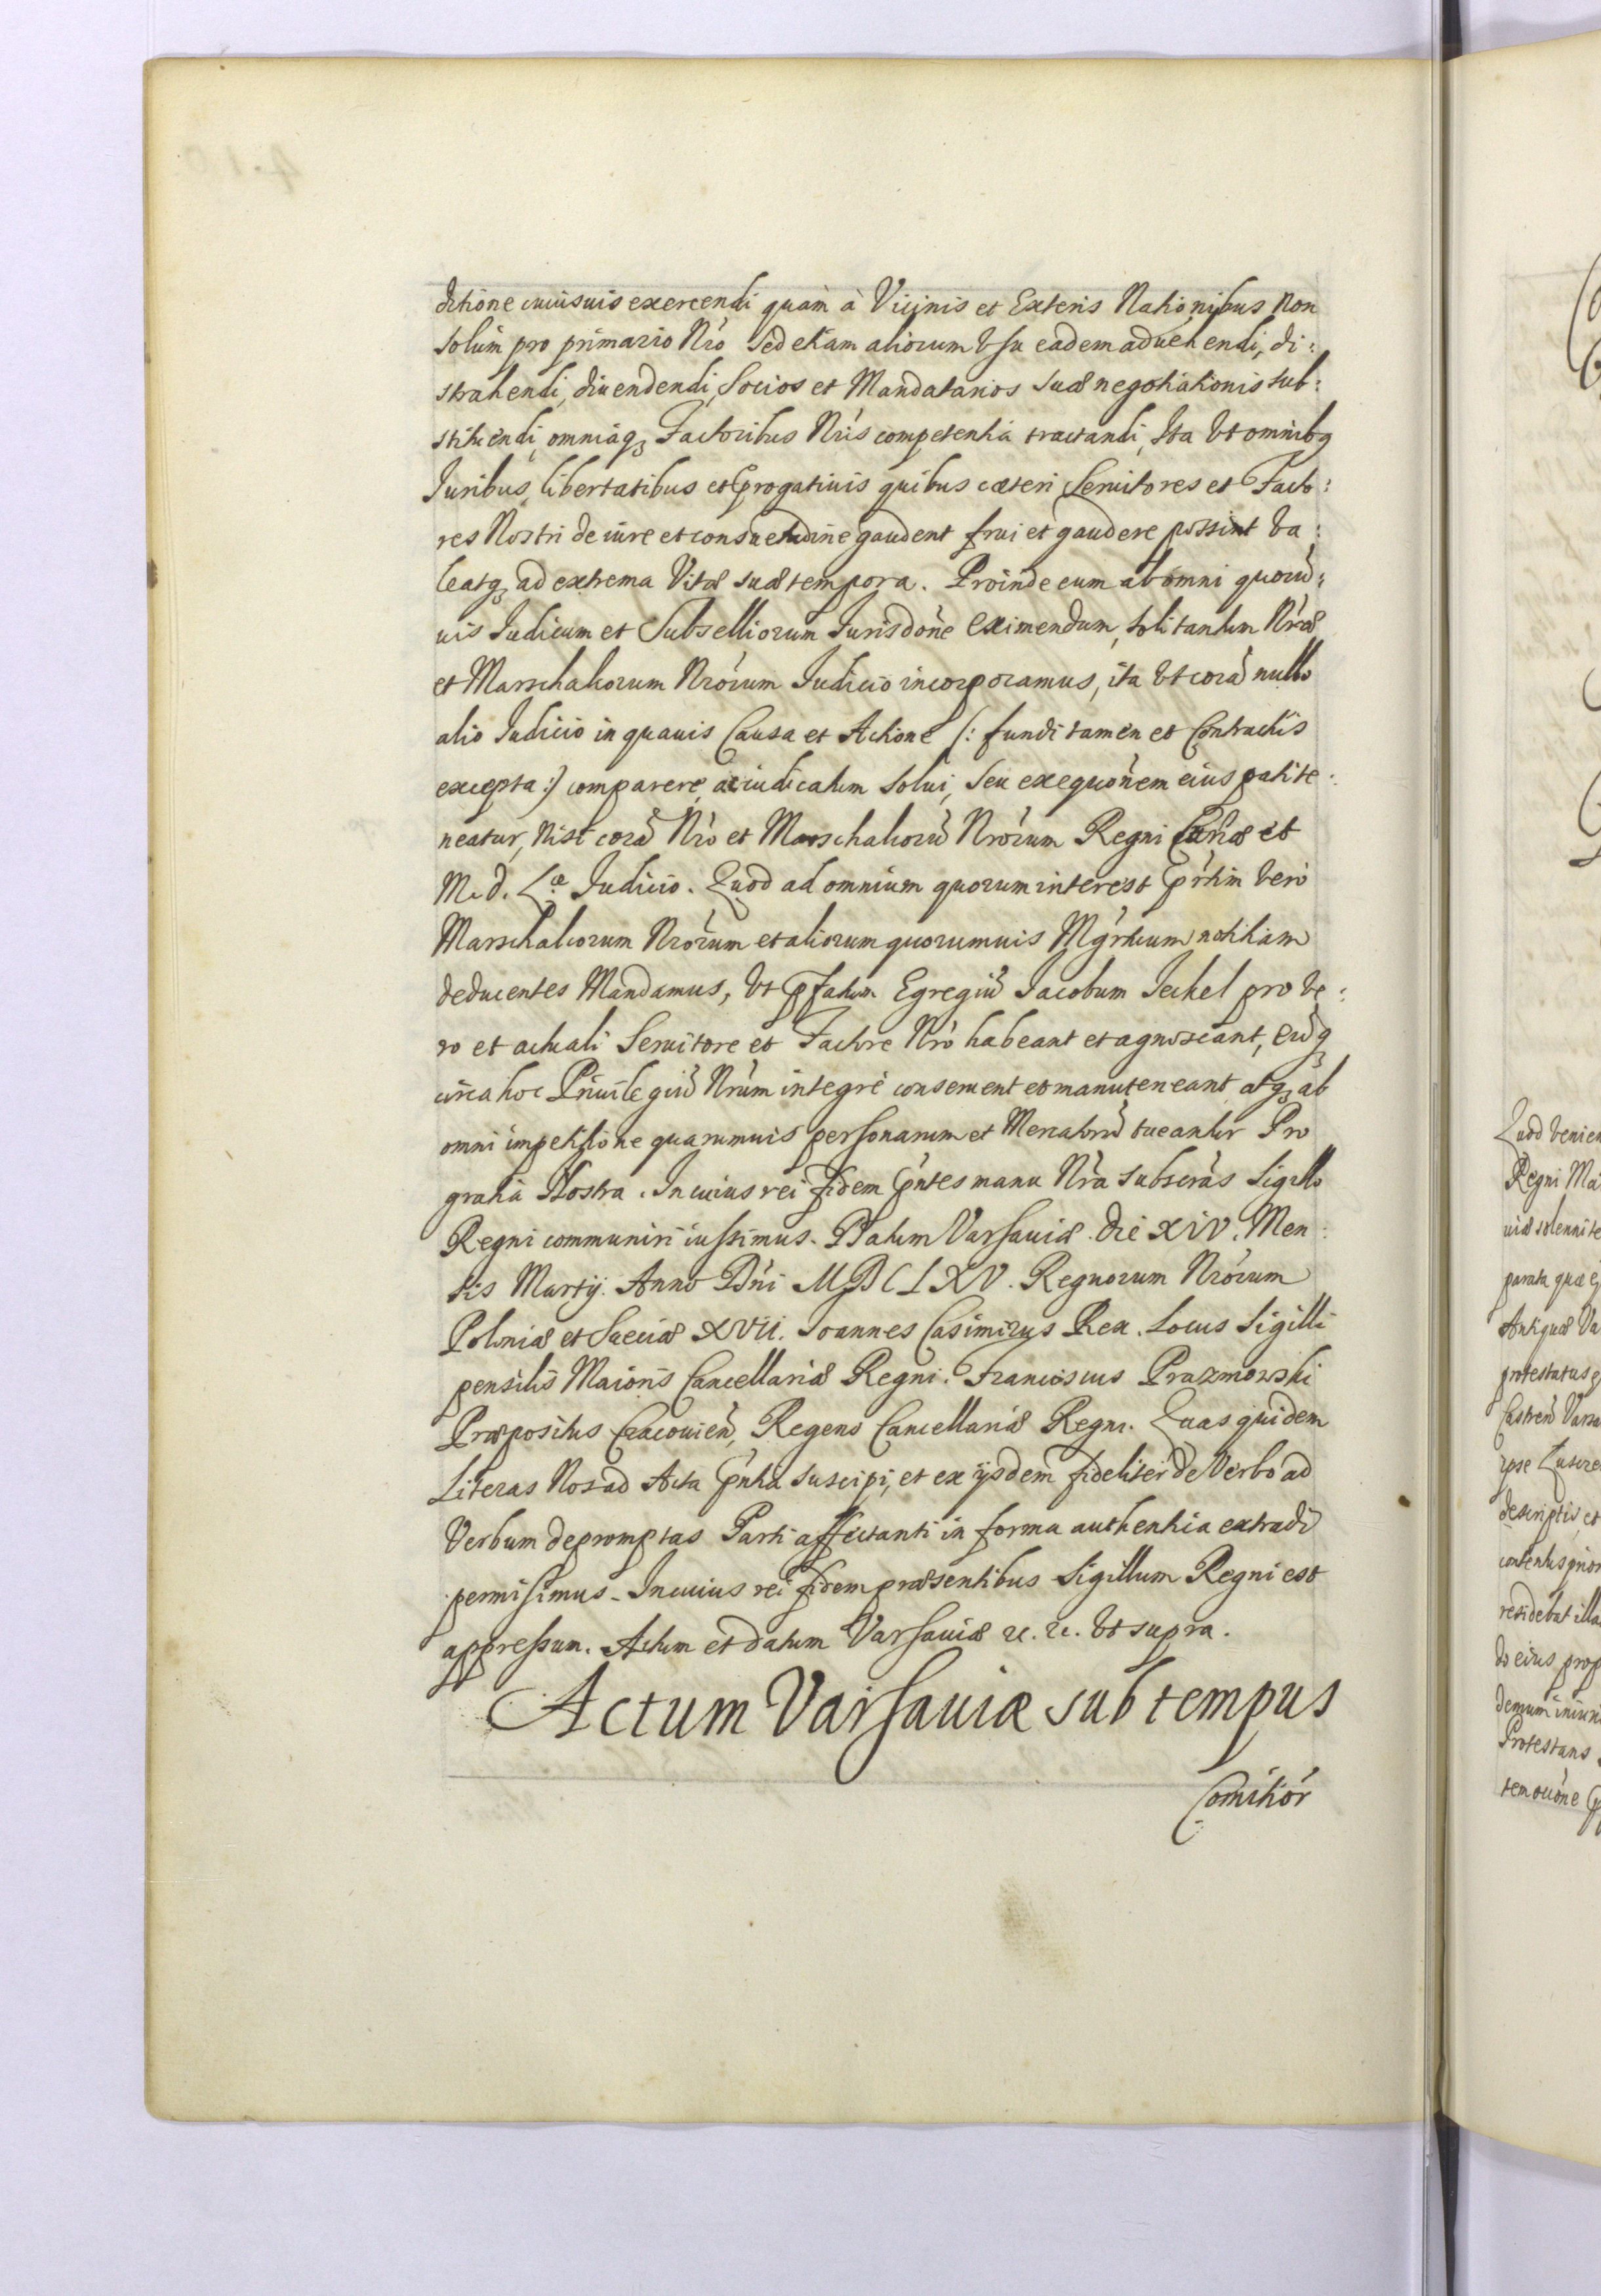 ditione cuiusuis exercendi quam à Vicinis et Exteris Nationibus non
solum pro primario Nro sed etiam aliorum Vsu eadem aduehendi, di:
strahendi, diuendendi, Socios et Mandatarios suæ negotiationis sub:
stituendi, omniaq₃ Factoribus Nris competentia tractandi, Ita Vt omnibq
Iuribus, libertatibus et progatiuis quibus cæteri Seruitores et Facto:
res Nostri de iure et consuetudine gaudent frui et gaudere possint va:
leatq₃ ad extrema Vitæ suæ tempora. Proinde eum ab omni quorū:
uis Iudicum et Subselliorum Iurisdone Eximendum, soli tantum Nræ
et Marschalcorum Nrorum Iudicio incorporamus, ita Vt corā nullo
alio Iudicio in quauis Causa et Actione (: fundi tamen et Contractūs
excepta :) comparere, aciudicatum solui, seu exequonem eius pati te:
neatur, nisi corā Nro et Marschalcorū Nrorum Regni Curiæ et
M. D. L.æ Iudicio. Quod ad omnium quorum interest prtim vero
Marschalcorum Nrorum et aliorum quorumuis Mgrtuum notitiam
deducentes Mandamus, Vt pfatum Egregiū Iacobum Jeckel pro ve:
ro et actuali Seruitore et Factore Nro habeant et agnoscant, eūq₃
circa hoc Priuilegiū Nrum integrè conseruent et manuteneant atq₃ ab
omni impetitione quarumuis personarum et Mercatorū tueantur Pro
gratia Nostra. In cuius rei fidem pntes manu Nra subscras Sigillo
Regni communiri iussimus. Datum Varsauiæ. die XIV. Men:
sis Martij. Anno Dni MDCLXV. Regnorum Nrorum
Poloniæ et Sueciæ XVII. Ioannes Casimirus Rex. Locus Sigilli
pensilis Maioris Cancellariæ Regni. Franciscus Prazmowski
Præpositus Cracouien, Regens Cancellariæ Regni. Quas quidem
Literas Nos ad Acta pntia suscipi, et ex ijsdem fideliter de Verbo ad
Verbum depromptas Parti affectanti in forma authentica extradi
permisimus. In cuius rei fidem præsentibus Sigillum Regni est
appressum. Actum et datum Varsauiæ &c. &c. Vt supra.
Actum Varsauiæ sub tempus
Comitior
Quod venien
Regni Ma
uiæ solennite
parata quæ
Antiquæ Va
protestatus
Castren Varsa
ipse
descriptis, et
contentus prior
residebat illa
do eius prop
demum iniun
Protestans